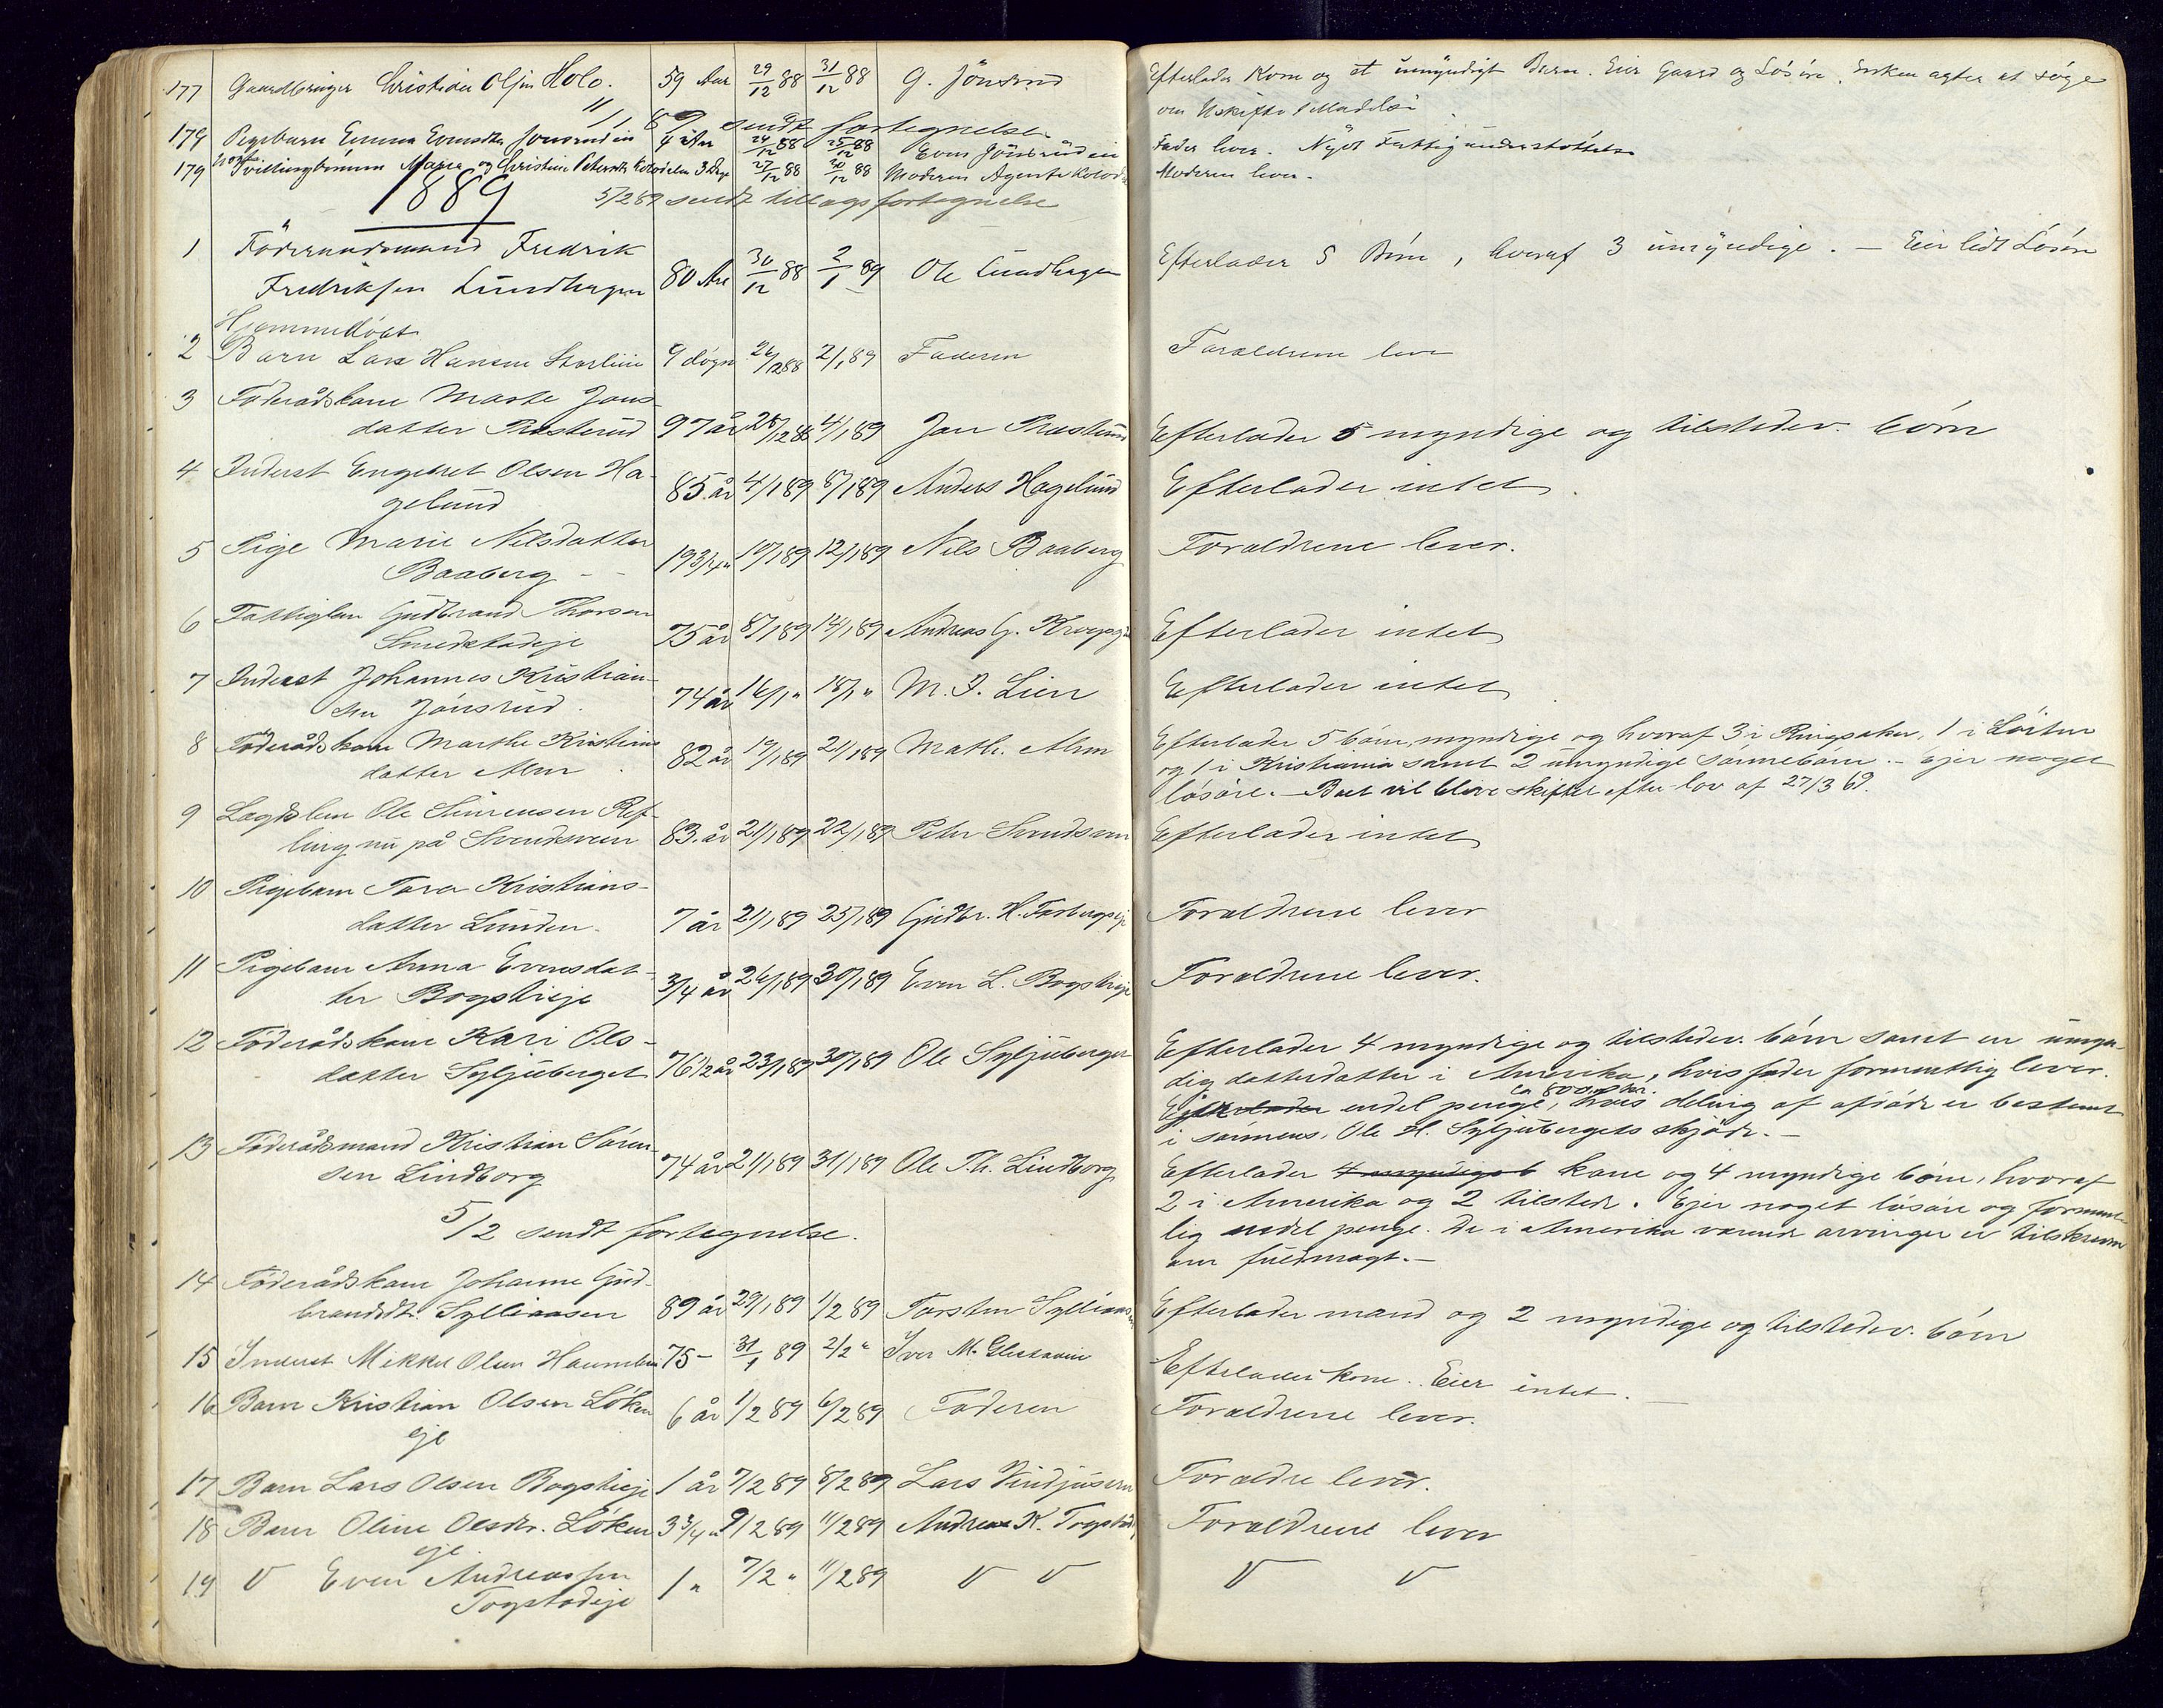 177 Gaardbruger Christian Olsen Holo. 59 Aar 29/12 88 31/12 88 G. Jönsrud Efterlader Kone og et umyndigt Barn. Eier Gaard og Løsøre. Enken agter at søge
om Uskifte
sendt fortegnelse
179 Pigebarn Emma Evensdtr Jonsrudein 4 Aar 24/12 88 25/12 88 Even Jönsrudein Fader lever. Nyder Fattigunderstøttelse
179 Tvillingbørnene Marie og Christine 3 Dage 27/12 88 30/12 88 Moderen Agente Moderen lever.
1889
5/2 89 sendt tillægsfortegnelse
1 Föderaadsmand Fredrik
Fredriksen Lundhagen 80 Aar 30/12 88 2/1 89 Ole Lundhagen Efterlader 5 Børn, hvoraf 3 umyndige. — Eier lidt Løsøre
Hjemmedøbt
2 Barn Lars Hansen 9 døgn 26/12 88 2/1 89 Faderen Forældrene lever
3 Föderådskone Marte Jons-
datter Præsterud 97 år 28/12 88 4/1 89 Jon Præsterud Efterlader 5 myndige og tilstedev. børn
4 Inderst Engebret Olsen Ha-
gelund 85 år 4/1 89 8/1 89 Anders Hagelund Efterlader intet.
5 Pige Marie Nilsdatter
Baaberg - - 19 3/4 " 10/1 89 12/1 89 Nils Baaberg Forældrene lever.
6 Fattiglem Gudbrand Thorsen
Smedstadeje 75 år 8/1 89 14/1 89 Andreas G. Efterlader intet
7 Inderst Johannes Kristian-
sen Jönsrud. 74 år 16/1 " 18/1 " M. J. Lien Efterlader intet
8 Föderådskone Marthe Kristians
datter Alm. 82 år 19/1 89 21/1 89 Math. Alm Efterlader 5 børn, myndige og hvoraf 3 i Ringsaker, 1 i Löiten
og 1 i Kristiania samt 2 umyndige sønnebørn. - Ejer noget
løsøre. - Boet vil blive skiftet efter lov af 27/3 69.
9 Lægdslem Ole Simensen Ref-
ling nu på Svendsveen 83 år 21/1 89 22/1 89 Peter Svendsveen Efterlader intet
10 Pigebarn Tora Kristians-
datter Lunden. 7 år 21/1 89 25/1 89 Gudbr. H. Forældrene lever
11 Pigebarn Anna Evensdat-
ter Bogstieje 3/4 år 26/1 89 30/1 89 Even L. Bogstieje Forældrene lever.
12 Föderådskone Kari Ols-
datter Syljuberget 76 1/2 år 23/1 89 30/1 89 Ole Syljuberget Efterlader 4 myndige og tilstedev. børn samt en umyn-
dig datterdatter i Amerika, hvis fader formentlig lever.
ca 800 kr.
Efterlader endel penge, hvis deling af afdøde er bestemt
i sønnens, Ole H. Syljubergets skjøde. -
13 Föderådsmand Kristian Sören-
sen Lindborg 74 år 21/1 89 31/1 89 Ole Th. Lindborg Efterlader 4 myndige b kone og 4 myndige børn, hvoraf
2 i Amerika og 2 tilstede. Ejer noget løsøre og forment-
lig endel penge. De i Amerika værende arvinger er tilskrevne
om fuldmagt. -
5/2 sendt fortegnelse.
14 Föderådskone Johanne Gud-
brandsdt. Sylliaasen 89 år 29/1 89 1/2 89 Torsten Sylliaasen Efterlader mand og 2 myndige og tilstedev. børn
15 Inderst Mikkel Olsen 75 - 31/1 89 2/2 " Iver M. Efterlader kone. Eier intet.
16 Barn Kristian Olsen Löken
eje 6 år 1/2 89 6/2 89 Faderen Forældrene lever.
17 Barn Lars Olsen Bogstieje 1 år 7/2 89 8/2 89 Lars Vindjusveen Forældre lever.
18 Barn Oline Olsdtr. Löken
eje 3 3/4 " 9/2 89 11/2 89 Andreas K. Togstad Forældrene lever
19 V Even Andreassen
Togstadeje 1 " 7/2 " 11/2 89 V V V V